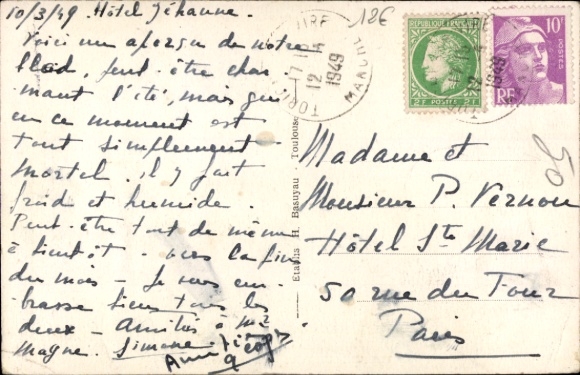 10/3/49 Hôtel Jéhanne.
Voici un aperçu de notre
bled, peut-être char
mant l'été, mais qui
en ce moment est
tout simplement
mortel. il y fait
froid et humide.
Peut-être tout de même
à bientôt - vers la fin
du mois - Je vous em
brasse tous les
deux - Amitiés à
Magne. Simone
18€
TORIGNI
MANCHE
17 H
12 4
1949
RÉPUBLIQUE FRANÇAISE
2F POSTES 2F
10F
POSTES
RF
Etablts H. Basuyau - Toulouse
Madame et
Monsieur P. Vernou
Hôtel Ste Marie
50 rue du Four
Paris
50